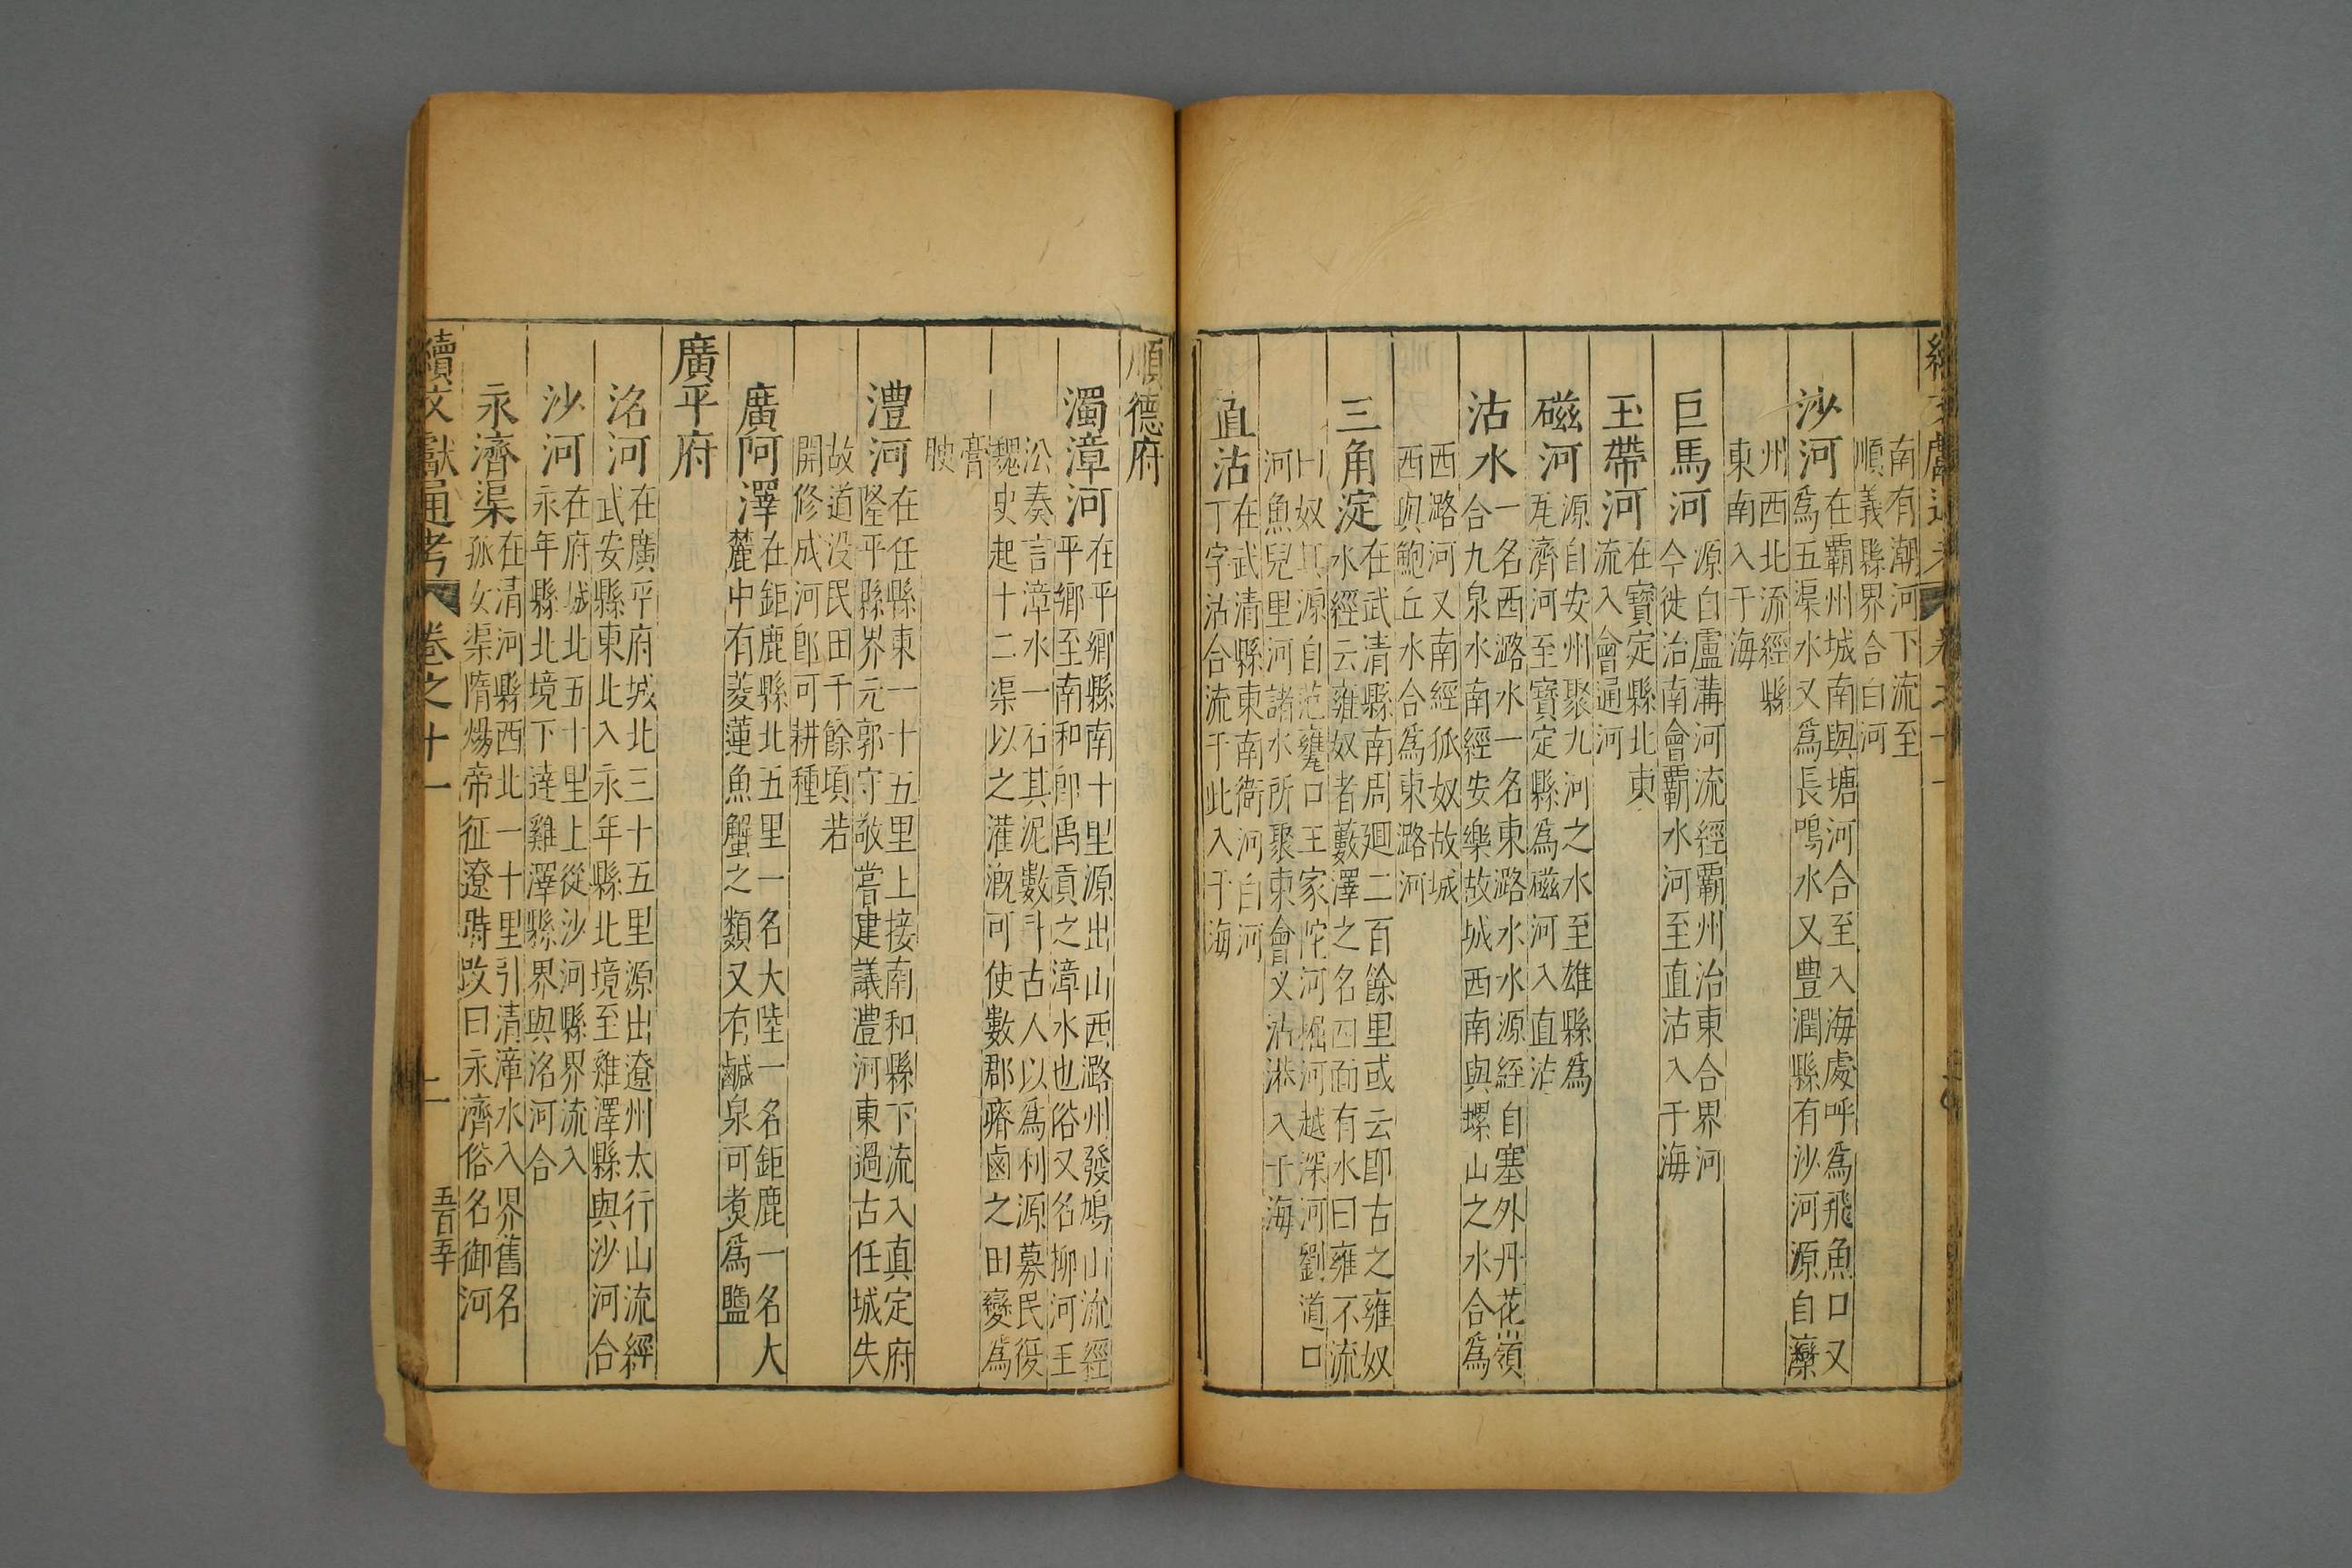 南有潮河下流至
順義縣界合白河
沙河
在霸州城南與塘河合至入海處呼爲飛魚口又
爲五渠水又爲長鳴水又豊潤縣有沙河源自灤
州西北流經縣
東南入于海
巨馬河
源自盧溝河流經霸州治東合界河
今徙治南會霸水河至直沽入于海
玉帶河
在寶定縣北東
流入會通河
磁河
源自安州聚九河之水至雄縣爲
尾濟河至寶定縣爲磁河入直沽
沽水
一名西潞水一名東潞水水源經自塞外丹花嶺
合九泉水南經安樂故城西南與螺山之水合爲
西路河又南經狐奴故城
西與鮑丘水合爲東潞河
三角淀
在武清縣南周廻二百餘里或云即古之雍奴
水經云雍奴者藪澤之名四面有水曰雍不流
曰奴其源自范甕口王家陀河掘河越深河劉道口
河魚兒里河諸水所聚東會叉沽港入于海
直沽
在武清縣東南衛河白河
丁字沽合流于此入于海
順德府
濁漳河
在平鄉縣南十里源出山西潞州發鳩山流經
平鄉至南和即禹貢之漳水也俗又名柳河王
公奏言漳水一石其泥數斗古人以爲利源募民復
魏史起十二渠以之灌漑可使數郡瘠鹵之田變爲
膏
腴
澧河
在任縣東一十五里上接南和縣下流入真定府
隆平縣界元郭守敬嘗建議澧河東過古任城失
故道没民田千餘頃若
開修成河即可耕種
廣阿澤
在鉅鹿縣北五里一名大陸一名鉅鹿一名大
麓中有菱蓮魚蟹之類又有鹹泉可煑爲鹽
廣平府
洺河
在廣平府城北三十五里源出遼州太行山流經
武安縣東北入永年縣北境至雞澤縣與沙河合
沙河
在府城北五十里上從沙河縣界流入
永年縣北境下達雞澤縣界與洺河合
永濟渠
在清河縣西北一十里引清漳水入界舊名
孤女渠隋煬帝征遼時改曰永濟俗名御河
續文獻通考 卷之十一 二 五百五十